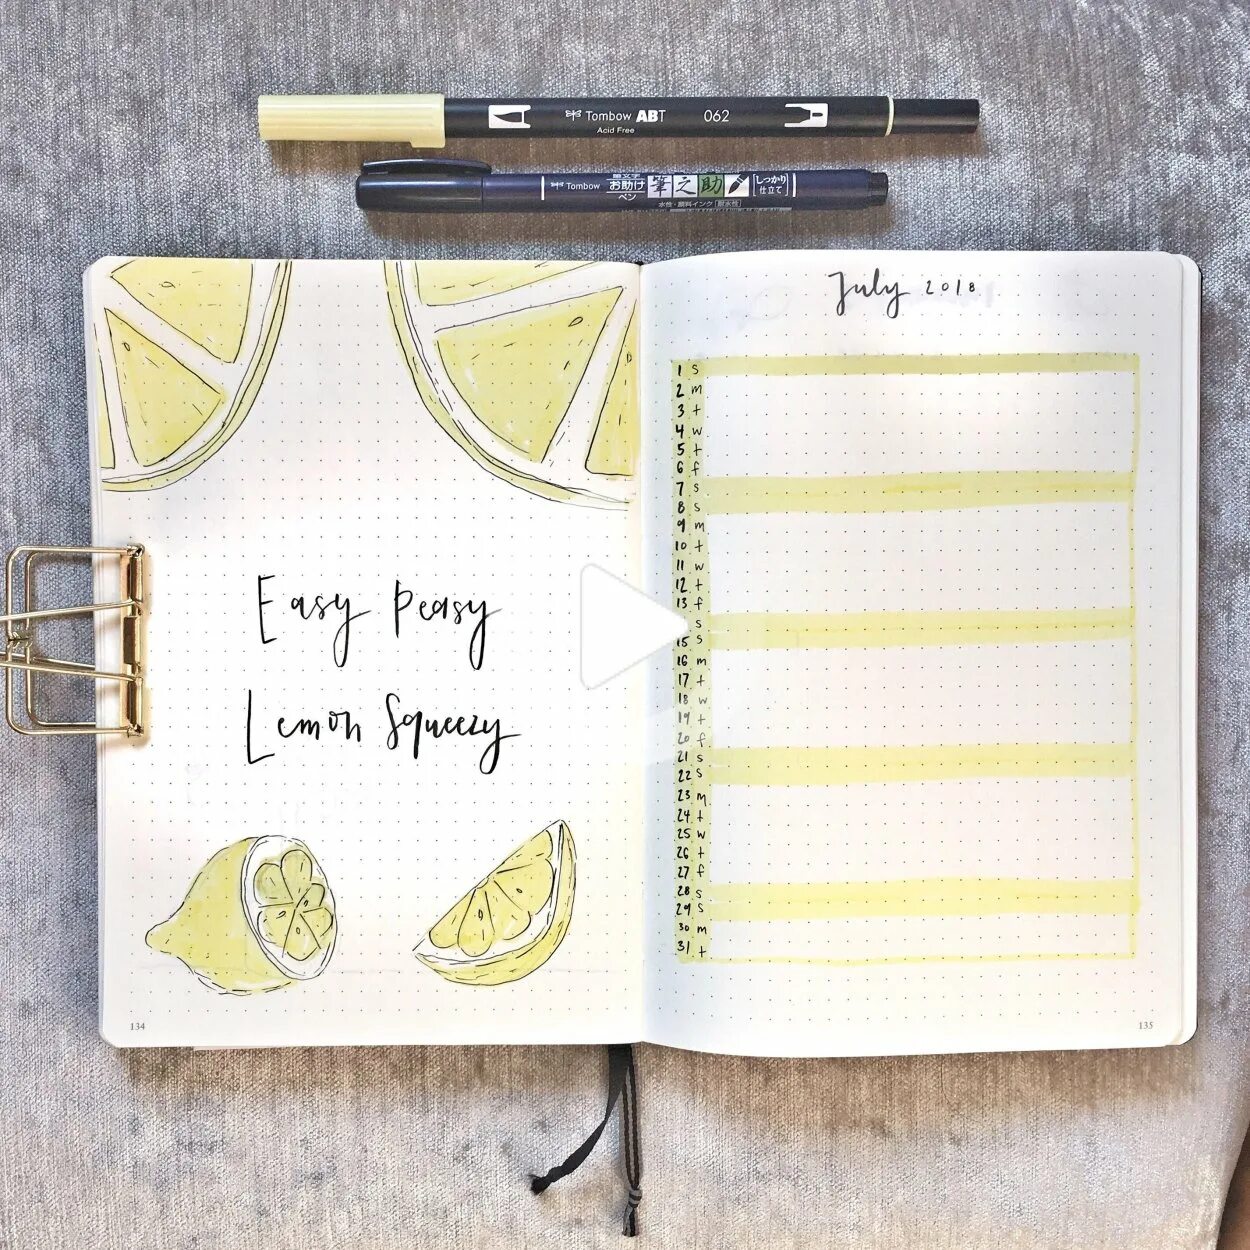 Tombow ABT 062
Acid Free
Tombow 筆文字 お助け ペン 筆之助 しっかり 仕立て
水性・顔料インク 耐水性
Easy Peasy
Lemon Squeezy
134
July 2018
1 s
2 m
3 t
4 w
5 t
6 f
7 s
8 s
9 m
10 t
11 w
12 t
13 f
s
15 s
16 m
17 t
18 w
19 t
20 f
21 s
22 s
23 m
24 t
25 w
26 t
27 f
28 s
29 s
30 m
31 t
135